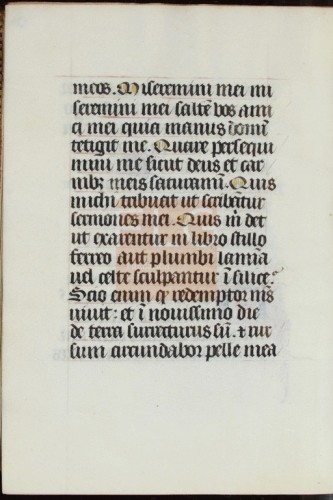 meos. Miseremini mei mi
seremini mei saltē vos ami
ci mei quia manus domī
tetigit me. Quare persequi
mini me sicut deus et car
nibꝫ meis saturamī. Quis
michi tribueit ut scribātur
sermones mei. Quis m̄ det
ut exarentur in libro stillo
ferreo aut plumbi lamīa
uel celte sculpantur ī silice.
Scio enim ꝙ redemptor m̄s
uiuit: et ī nouissimo die
de terra surrecturus sū. ⁊ rur
sum circundabor pelle mea